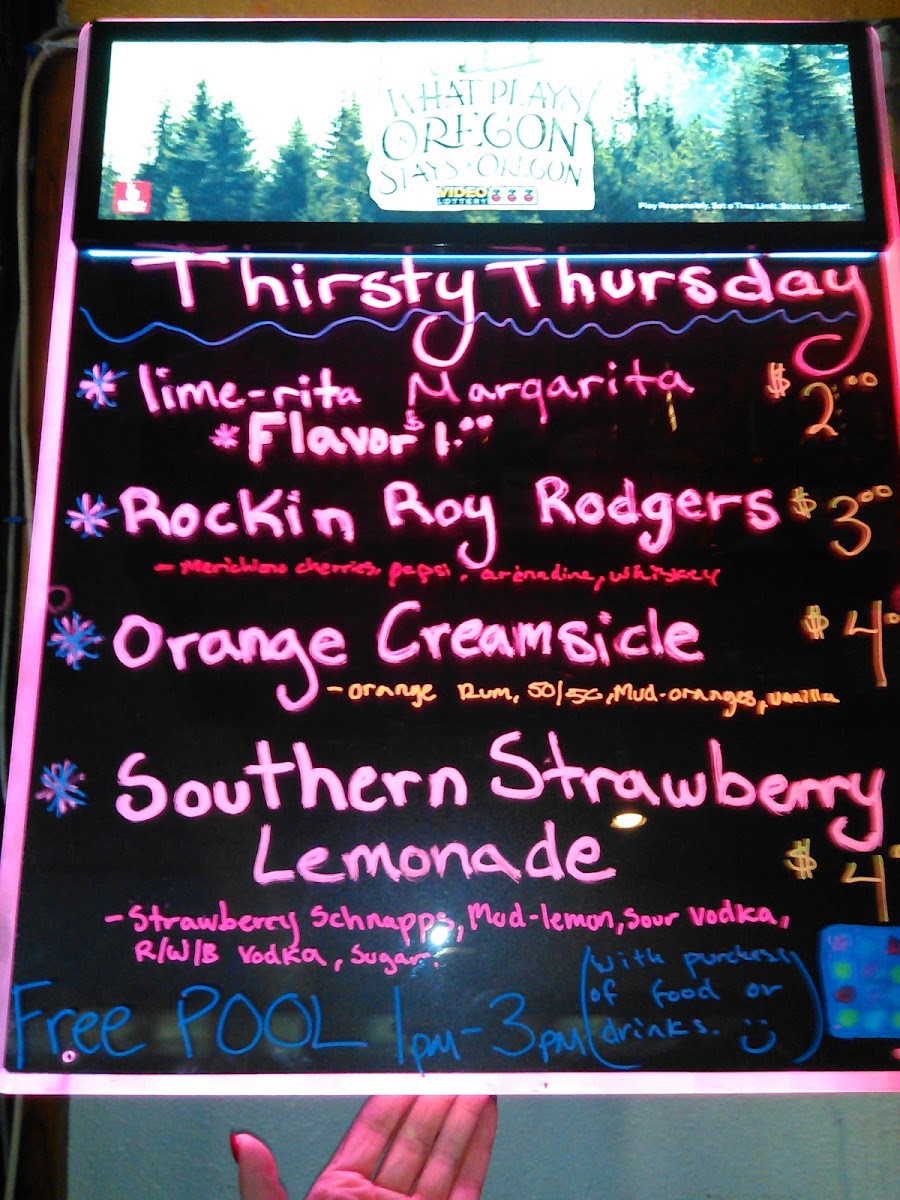 WHAT PLAYS
IN
OREGON
STAYS IN OREGON
VIDEO
LOTTERY
Play Responsibly. Set a Time Limit. Stick to a Budget.
Thirsty Thursday
* lime-rita Margarita $2.00
* Flavor $1.00
* Rockin Roy Rodgers $3.00
- Merichino cherries, pepsi, grenadine, whiskey
* Orange Creamsicle $4.0
- orange Rum, 50/50, Mud-oranges, vanilla
* Southern Strawberry
Lemonade $4.0
- Strawberry Schnapps, Mud-lemon, Sour Vodka,
R/W/B Vodka, Sugar.
Free POOL 1pm-3pm (with purchase
of food or
drinks. :))